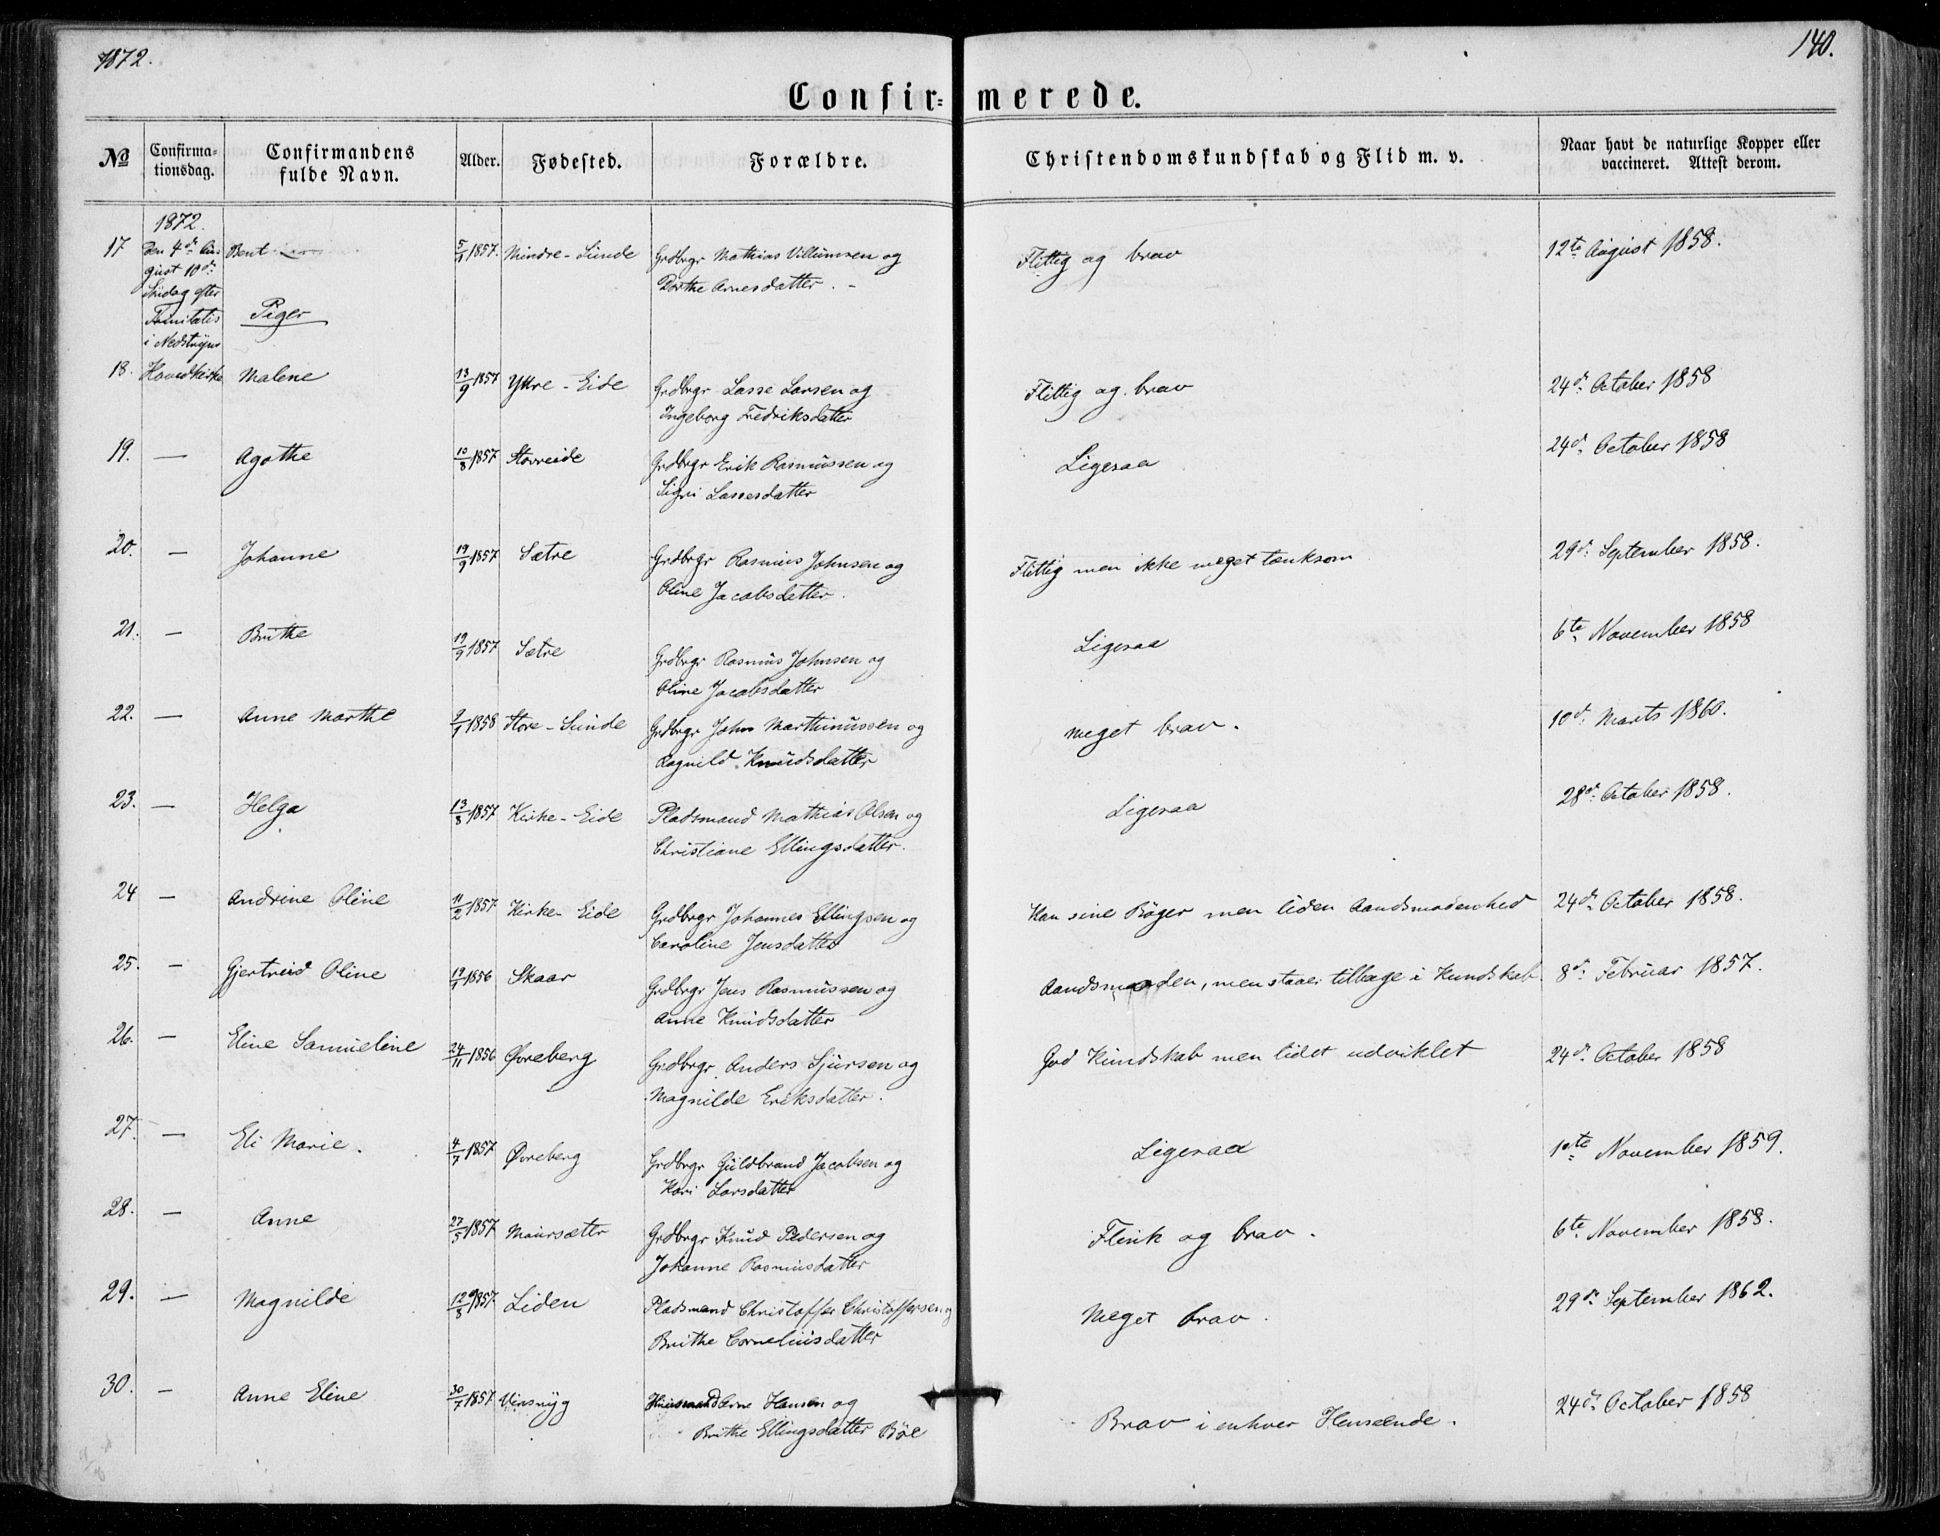 1872.
140.
Confir= merede.
№ Confirma-tionsdag. Confirmandens fulde Navn. Alder. Fødested. Forældre. Christendomskundskab og Flid m. v. Naar havt de naturlige Kopper eller vaccineret. Attest derom.
1872.
17 Den 4de Au- Bent 5/1 1857. Mindre-Sunde Grdbrgr Mathias Villumsen og Flittig og brav 12te August 1858.
gust 10de Dorthe Arnesdatter. -
Søndag efter
Trinitatis Piger
i Nedstryns
18. Hovedkirke Malene 13/9 1857 Ytre-Eide Grdbrgr Lasse Larsen og Flittig og brav 24de October 1858
Ingeborg Fredriksdatter
19. — Agathe 10/8 1857 Storreide Grdbrgr Erik Rasmussen og Ligesaa 24de October 1858
Sigri Lassesdatter
20. — Johanne 19/9 1857 Sætre Grdbrgr Rasmus Johnsen og Flittig men ikke meget tænksom 29de September 1858.
Oline Jacobsdatter.
21. — Brithe 19/9 1857 Sætre Grdbrgr Rasmus Johnsen og Ligesaa 6te November 1858
Oline Jacobsdatter
22. — Anne Marthe 2/1 1858 Store-Sunde Grdbrgr John Marthinussen og Meget brav. 10de Marts 1860.
Ragnild Knudsdatter
23. — Helga 13/8 1857 Kirke-Eide Pladsmand Mathias Olsen og Ligesaa 28de October 1858.
Christiane Ellingsdatter.
24 — Andrine Oline 11/2 1857 Kirke-Eide Grdbrgr Johannes Ellingsen og Kan sine Bøger men liden Aandsmodenhed 24de October 1858.
Caroline Jensdatter
25. — Gjertrud Oline 19/9 1856 Skaar Grdbrgr Jens Rasmussen og Aandsmoden, men staaer tilbage i Kundskab. 8de Februar 1857.
Anne Knudsdatter
26. — Eline Samueline 24/11 1856 Øvreberg Grdbrgr. Anders Sjursen og God Kundskab men lidet udviklet 24de October 1858
Magnilde Eriksdatter.
27. — Eli Marie. 4/7 1857 Øvreberg Grdbrgr Guldbrand Jacobsen og Ligesaa 1ste November 1859.
Kari Larsdatter
28. — Anne 27/5 1857 Maursætter Grdbrgr Knud Pedersen og Flink og brav. 6te November 1858.
Johanne Rasmusdatter
29. — Magnilde 12/8 1857 Liden Pladsmand Christoffer Christoffersen og Meget brav. 29de September 1862.
Brithe Corneliusdatter
30. — Anne Eline 30/7 1857 Vinsryg Huusmand Arne Hansen og Brav i enhver Henseende. 24de October 1858
Brithe Ellingsdatter Bøe